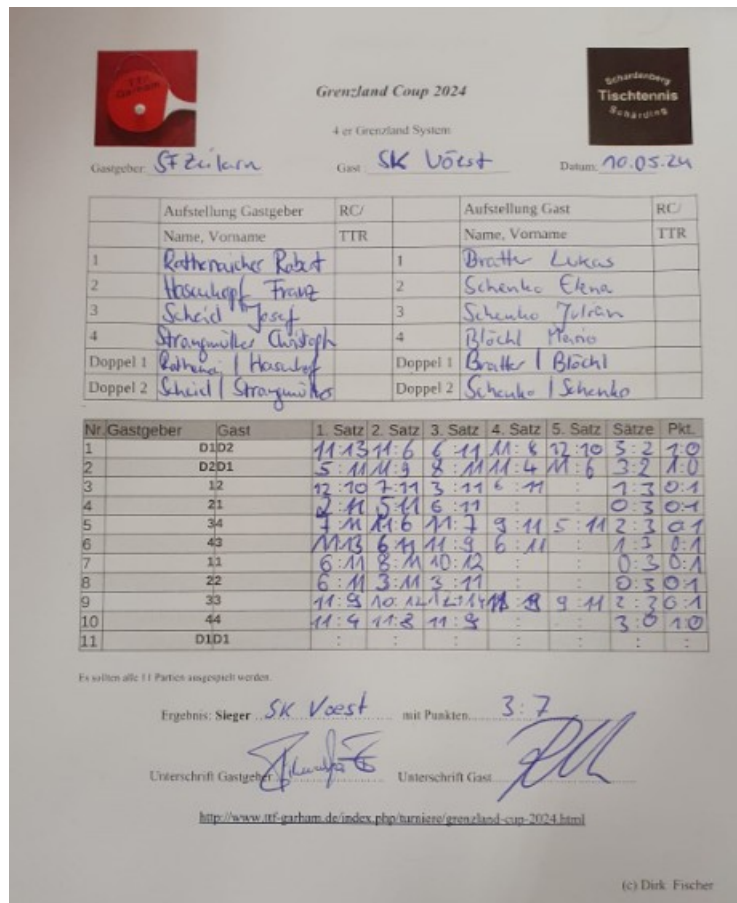 TTF
Garham
Schardenberg
Tischtennis
Schärding
Grenzland Coup 2024
4 er Grenzland System
Gastgeber: SF Zeilarn Gast : SK Vöest Datum: 10.05.24
Aufstellung Gastgeber RC/ Aufstellung Gast RC/
Name, Vorname TTR Name, Vorname TTR
1 Robert 1 Lukas
2 Franz 2 Schenko Elena
3 Scheid Josef 3 Schenko Julian
4 Strangmüller Christoph 4 Blöchl Mario
Doppel 1 Doppel 1 / Blöchl
Doppel 2 Scheid / Strangmüller Doppel 2 Schenko / Schenko
Nr. Gastgeber Gast 1. Satz 2. Satz 3. Satz 4. Satz 5. Satz Sätze Pkt.
1 D1 D2 11:13 11:6 6:11 11:8 12:10 3:2 1:0
2 D2 D1 5:11 11:9 8:11 11:4 11:6 3:2 1:0
3 1 2 12:10 7:11 3:11 6:11 : 1:3 0:1
4 2 1 2:11 5:11 6:11 : : 0:3 0:1
5 3 4 7:11 11:6 11:7 9:11 5:11 2:3 0:1
6 4 3 11:13 6:11 11:9 6:11 : 1:3 0:1
7 1 1 6:11 8:11 10:12 : : 0:3 0:1
8 2 2 6:11 3:11 3:11 : : 0:3 0:1
9 3 3 11:9 10:12 12:14 9:11 2:3 0:1
10 4 4 11:4 11:8 11:9 : : 3:0 1:0
11 D1 D1 : : : : : : :
Es sollten alle 11 Partien ausgespielt werden.
Ergebnis: Sieger SK Voest mit Punkten 3:7
Unterschrift Gastgeber Unterschrift Gast
http://www.ttf-garham.de/index.php/turniere/grenzland-cup-2024.html
(c) Dirk Fischer